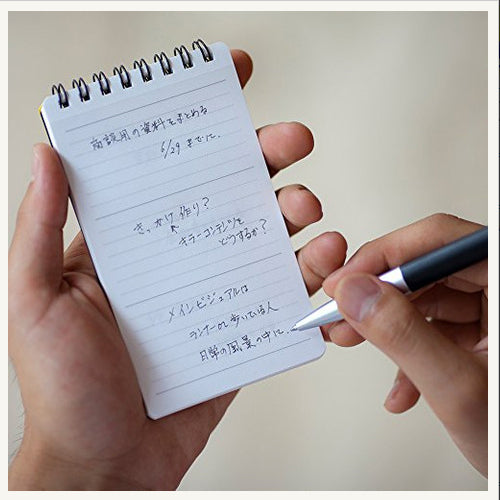 商談用の資料をまとめる
6/29 までに.
きっかけ作り?
キラーコンテンツを
どうするか?
メインビジュアルは
ランナーor歩いている人
日常の風景の中に、